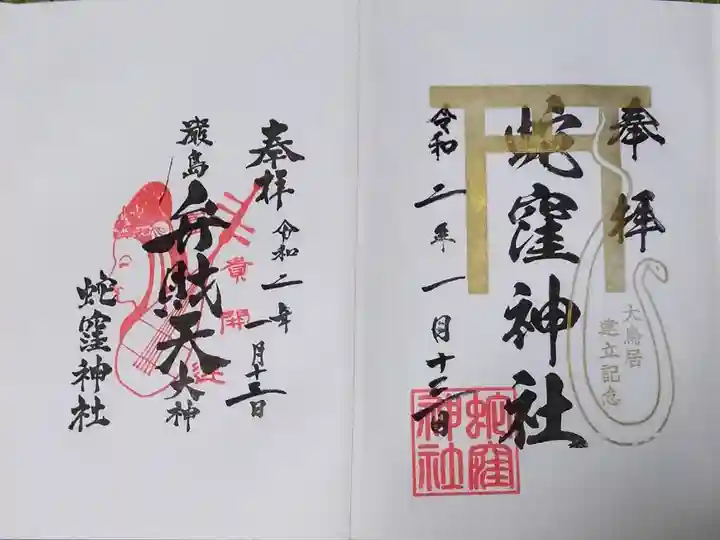 奉拝
蛇窪神社
令和二年一月十三日
大鳥居
建立記念
蛇窪
神社
奉拝
令和二年一月十三日
厳島
弁財天
大神
蛇窪神社